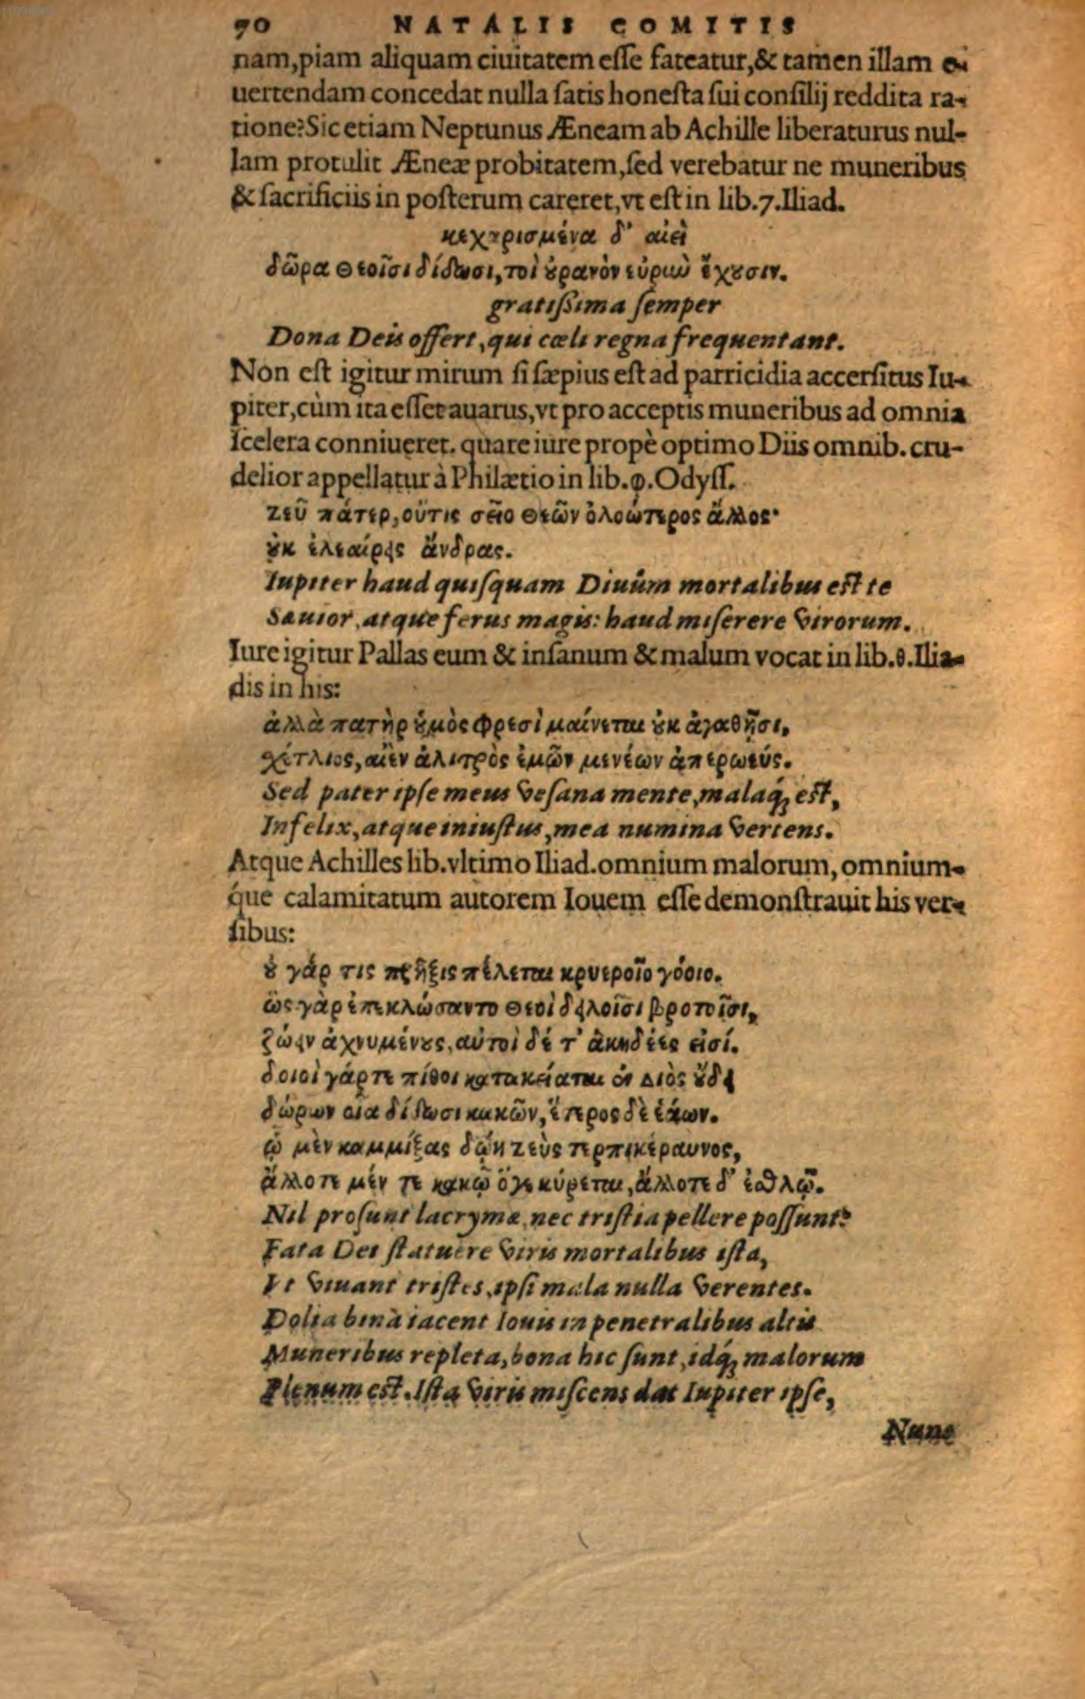 70 NATALIS COMITIS
nam,piam aliquam ciuitatem esse fateatur,& tamen illam e-
uertendam concedat nulla satis honesta sui consilij reddita ra-
tione?Sic etiam Neptunus Æneam ab Achille liberaturus nul-
lam protulit Æneæ probitatem,sed verebatur ne muneribus
& sacrificiis in posterum careret,vt est in lib.7.Iliad.
κεχαρισμένα δ' αἰεὶ
δῶρα θεοῖσι δίδωσι,τοὶ ȣ̓ρανὸν εὐριὼ ἔχȣσιν.
gratissima semper
Dona Deis offert,qui cœli regna frequentant.
Non est igitur mirum si sæpius est ad parricidia accersitus Iu-
piter,cùm ita esset auarus,vt pro acceptis muneribus ad omnia
scelera conniueret. quare iure propè optimo Diis omnib. cru-
delior appellatur à Philætio in lib.φ.Odyss.
ζεῦ πάτερ,οὔτις σεῖο θεῶν ὀλοώτερος ἄλλος·
ȣ̓κ ἐλεαίρεις ἄνδρας.
Iupiter haud quisquam Diuûm mortalibus est te
Sæuior,atque ferus magis: haud miserere virorum.
Iure igitur Pallas eum & insanum & malum vocat in lib.θ.Ilia-
dis in his:
ἀλλὰ πατὴρ ȣ̓μὸς φρεσὶ μαίνεται ȣ̓κ ἀγαθῇσι,
χέτλιος,αἰὲν ἀλιτρὸς ἐμῶν μενέων ἀπερωεύς.
Sed pater ipse meus vesana mente,malaq; est,
Infelix,atque iniustus,mea numina vertens.
Atque Achilles lib.vltimo Iliad.omnium malorum,omnium-
que calamitatum autorem Iouem esse demonstrauit his ver-
sibus:
ȣ̓ γάρ τις πρῆξις πέλεται κρυεροῖο γόοιο.
ὣς γὰρ ἐπεκλώσαντο θεοὶ δειλοῖσι βροτοῖσι,
ζώειν ἀχνυμένȣς,αὐτοὶ δέ τ' ἀκηδέες εἰσί.
δοιοὶ γάρ τε πίθοι κατακείαται ἐν Διὸς ȣ̓́δει
δώρων οἷα δίδωσι κακῶν,ἕτερος δὲ ἐάων.
ᾧ μὲν καμμίξας δώῃ ζεὺς τερπικέραυνος,
ἄλλοτε μέν τε κακῷ ὅγε κύρεται,ἄλλοτε δ' ἐσθλῷ.
Nil prosunt lacrymæ,nec tristia pellere possunt?
Fata Dei statuere viris mortalibus ista,
Vt viuant tristes,ipsi mala nulla verentes.
Dolia bina iacent Iouis in penetralibus altis
Muneribus repleta,bona hic sunt,idq; malorum
Plenum est.Ista viris miscens dat Iupiter ipse,
Nunc